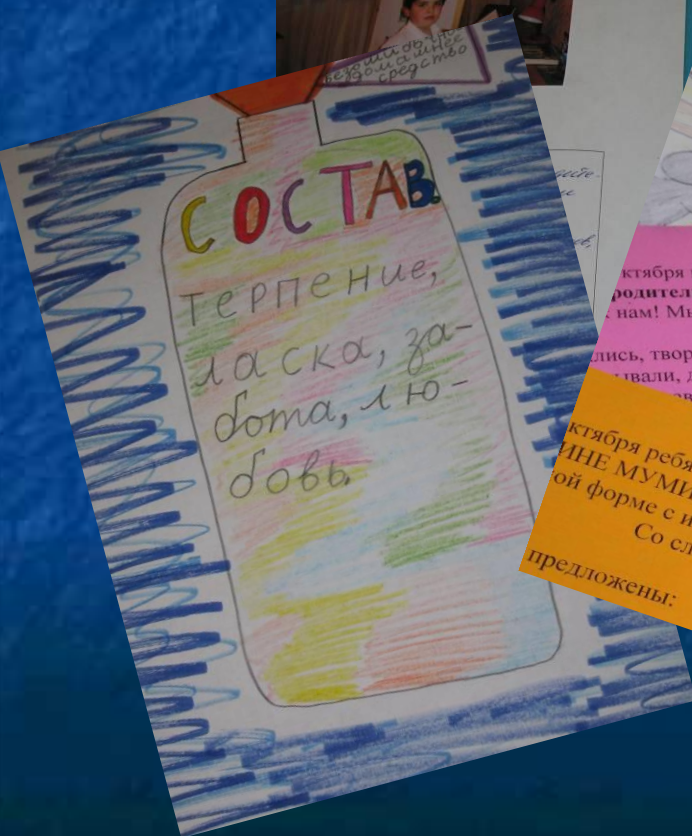 домашнее
средство
СОСТАВ.
терпение,
ласка, за-
бота, лю-
бовь.
ктября
родител
к нам! Мы
лись, твор
ывали, д
ктября ребя
ИНЕ МУМИ
ой форме с и
Со сл
предложены: